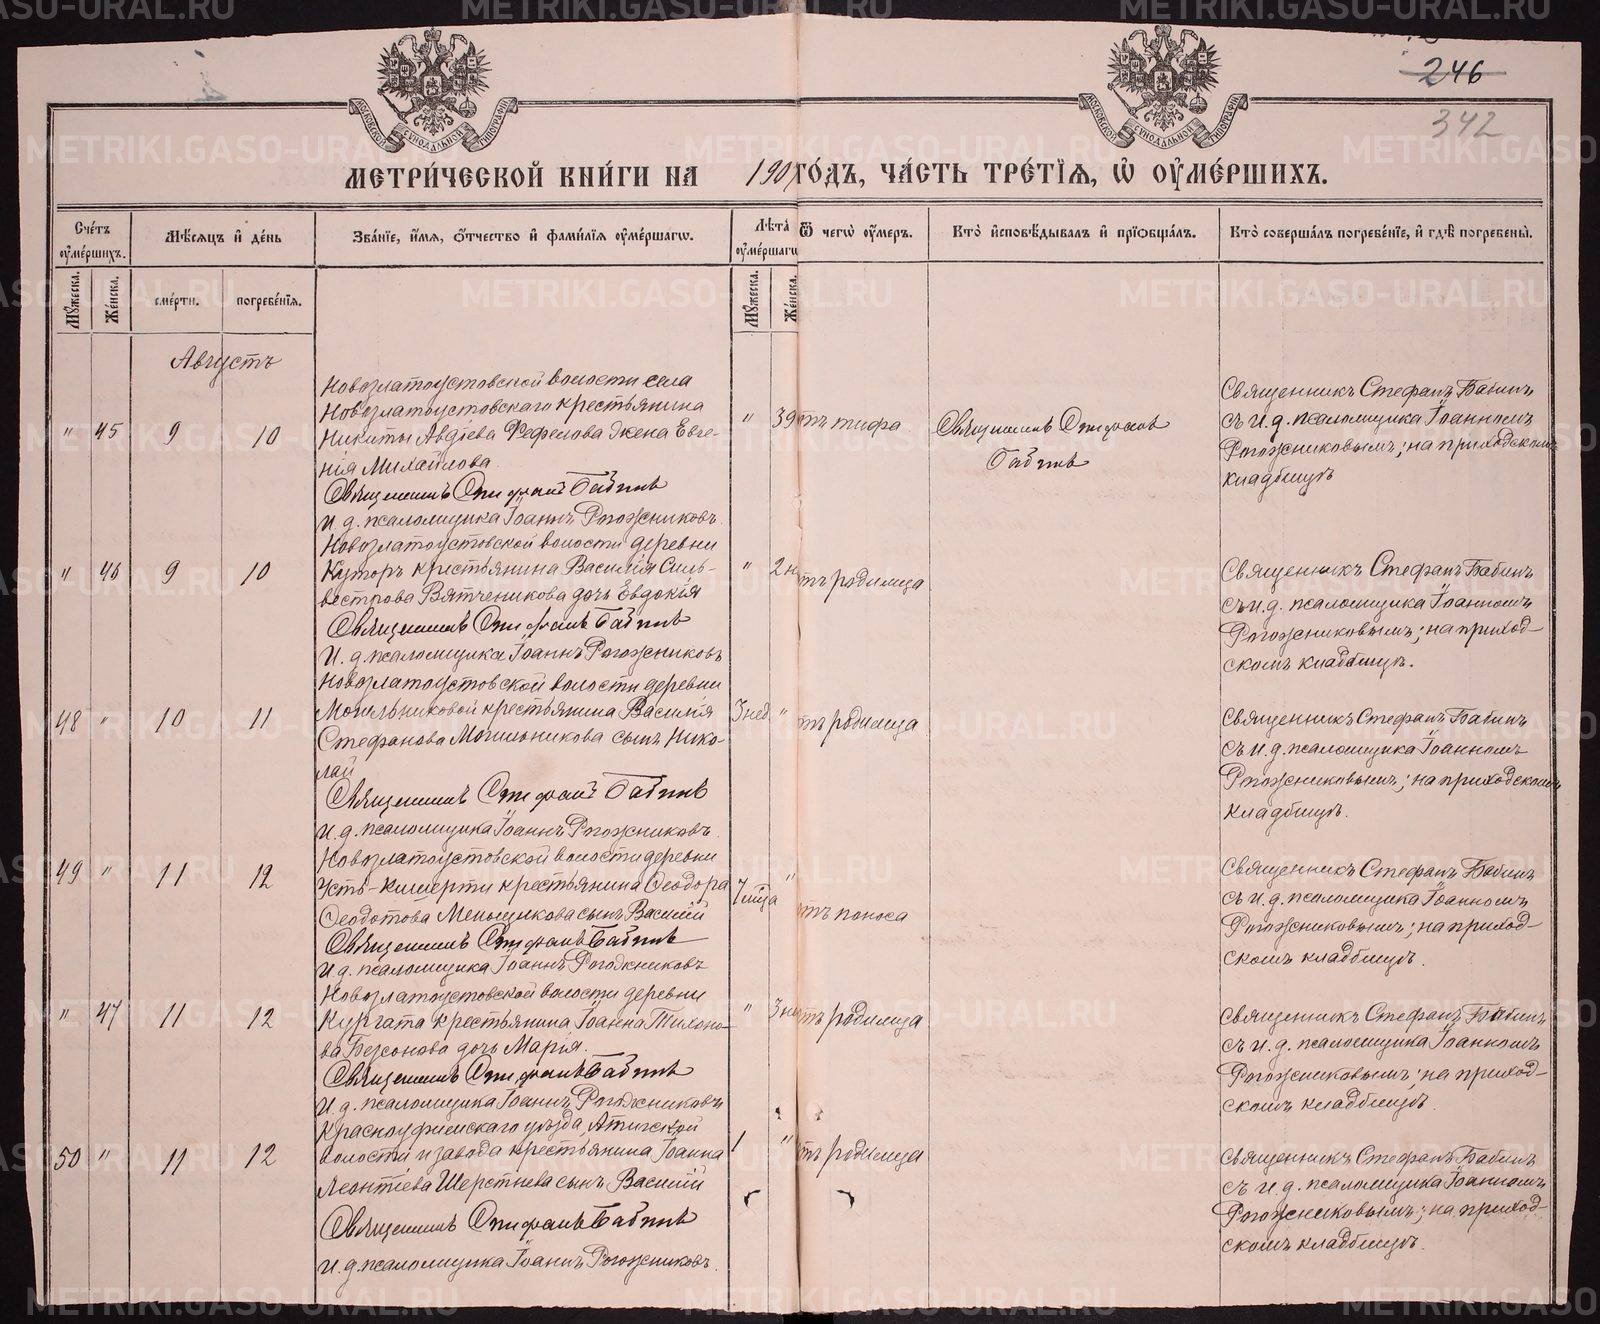 246
342
МОСКОВСКОЙ СѴНОДАЛЬНОЙ ТИПОГРАФІИ
МОСКОВСКОЙ СѴНОДАЛЬНОЙ ТИПОГРАФІИ
МЕТРИ́ЧЕСКОЙ КНИ́ГИ НА 190 ГО́ДЪ, ЧА́СТЬ ТРЕ́ТІѦ, Ѡ ОУМЕ́РШИХЪ.
Сче́тъ оуме́ршихъ.
Мѣ́сяцъ и де́нь
Зва́ніе, и́мя, о́тчество и фами́лія оуме́ршагѡ.
Лѣта̀ оуме́ршагѡ
Ѿ чегѡ̀ оу́меръ.
Кто̀ исповѣ́дывалъ и прїобща́лъ.
Кто̀ соверша́лъ погребе́ніе, и гдѣ̀ погребены̀.
Му́жеска.
Же́нска.
сме́рти.
погребе́нія.
Му́жеска.
Же́нска.
Августъ
" 45 9 10
Новозлатоустовской волости села
Новозлатоустовскаго крестьянина
Никиты Авдіева Фефелова жена Евге-
нія Михайлова
Священникъ Стефанъ Бабинъ
И. д. псаломщика Іоаннъ Рогожниковъ.
" 39
отъ тифа
Священникъ Стефанъ
Бабинъ
Священникъ Стефанъ Бабинъ
съ и. д. псаломщика Іоанномъ
Рогожниковымъ; на приходскомъ
кладбищѣ
" 46 9 10
Новозлатоустовской волости деревни
Куторъ крестьянина Василія Силь-
вестрова Вятченикова дочь Евдокія
Священникъ Стефанъ Бабинъ
И. д. псаломщика Іоаннъ Рогожниковъ
" 2 н
отъ родимца
Священникъ Стефанъ Бабинъ
съ и. д. псаломщика Іоанномъ
Рогожниковымъ; на приход-
скомъ кладбищѣ.
48 " 10 11
Новозлатоустовской волости деревни
Могильниковой крестьянина Василія
Стефанова Могильникова сынъ Нико-
лай
Священникъ Стефанъ Бабинъ
И. д. псаломщика Іоаннъ Рогожниковъ.
3 нед. "
отъ родимца
Священникъ Стефанъ Бабинъ
съ и. д. псаломщика Іоанномъ
Рогожниковымъ; на приходскомъ
кладбищѣ.
49 " 11 12
Новозлатоустовской волости деревни
Усть-Кишерти крестьянина Ѳеодора
Ѳеодотова Меньщикова сынъ Василій
Священникъ Стефанъ Бабинъ
И. д. псаломщика Іоаннъ Рогожниковъ
7 мца "
отъ поноса
Священникъ Стефанъ Бабинъ
съ и. д. псаломщика Іоанномъ
Рогожниковымъ; на приход-
скомъ кладбищѣ.
" 47 11 12
Новозлатоустовской волости деревни
Кургата крестьянина Іоанна Тихоно-
ва Безсонова дочь Марія.
Священникъ Стефанъ Бабинъ
И. д. псаломщика Іоаннъ Рогожниковъ
" 3 не
отъ родимца
Священникъ Стефанъ Бабинъ
съ и. д. псаломщика Іоанномъ
Рогожниковымъ; на приход-
скомъ кладбищѣ.
50 " 11 12
Красноуфимскаго уѣзда, Атигской
волости и завода крестьянина Іоанна
Леонтіева Шерстнева сынъ Василій
Священникъ Стефанъ Бабинъ
И. д. псаломщика Іоаннъ Рогожниковъ.
1 "
отъ родимца
Священникъ Стефанъ Бабинъ
съ и. д. псаломщика Іоанномъ
Рогожниковымъ; на приход-
скомъ кладбищѣ.
METRIKI.GASO-URAL.RU